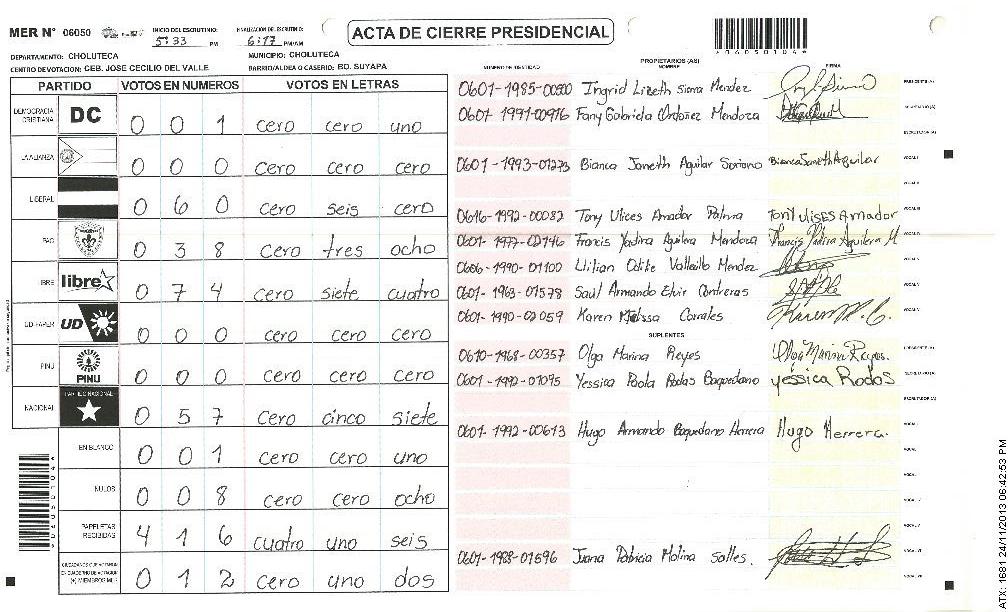 MER N° 06050
INICIO DEL ESCRUTINIO: 5:33 PM
FINALIZACION DEL ESCRUTINIO: 6:17 PM/AM
ACTA DE CIERRE PRESIDENCIAL
*06050104*
DEPARTAMENTO: CHOLUTECA
MUNICIPIO: CHOLUTECA
CENTRO DE VOTACION: CEB. JOSE CECILIO DEL VALLE
BARRIO/ALDEA O CASERIO: BO. SUYAPA
PARTIDO VOTOS EN NUMEROS VOTOS EN LETRAS
DEMOCRACIA CRISTIANA DC 0 0 1 cero cero uno
LA ALIANZA 0 0 0 cero cero cero
LIBERAL 0 6 0 cero seis cero
PAC 0 3 8 cero tres ocho
LIBRE libre 0 7 4 cero siete cuatro
UD-FAPER UD 0 0 0 cero cero cero
PINU PINU 0 0 0 cero cero cero
NACIONAL PARTIDO NACIONAL 0 5 7 cero cinco siete
EN BLANCO 0 0 1 cero cero uno
NULOS 0 0 8 cero cero ocho
PAPELETAS RECIBIDAS 4 1 6 cuatro uno seis
CIUDADANOS QUE VOTARON EN CUADERNO DE VOTACION (+) MIEMBROS MER 0 1 2 cero uno dos
NUMERO DE IDENTIDAD
PROPIETARIOS (AS)
NOMBRE
FIRMA
0601-1985-00500 Ingrid Lizeth Sierra Mendez PRESIDENTE (A)
0601-1991-00976 Fany Gabriela Ordoñez Mendoza SECRETARIO (A)
ESCRUTADOR (A)
0601-1993-01273 Bianca Janeth Aguilar Soriano Bianca Janeth Aguilar VOCAL I
0616-1992-00082 Tony Ulices Amador Palma Tony Ulises Amador
0601-1977-02146 Francis Yadira Aguilera Mendoza Francis Yadira Aguilera M
0606-1990-01100 Lilian Odite Vallecillo Mendez
0601-1963-01578 Saúl Armando Elvir Contreras
0601-1990-02059 Karen Melissa Corrales Karen M. C.
SUPLENTES
0610-1968-00357 Olga Marina Reyes Olga Marina Reyes. PRESIDENTE (A)
0601-1992-01095 Yessica Paola Rodas Baquedano Yessica Rodas SECRETARIO (A)
ESCRUTADOR (A)
0601-1992-00613 Hugo Armando Baquedano Herrera Hugo Herrera.
0601-1988-01596 Juana Patricia Molina Salles.
ATX: 1681 24/11/2013 06:42:53 PM